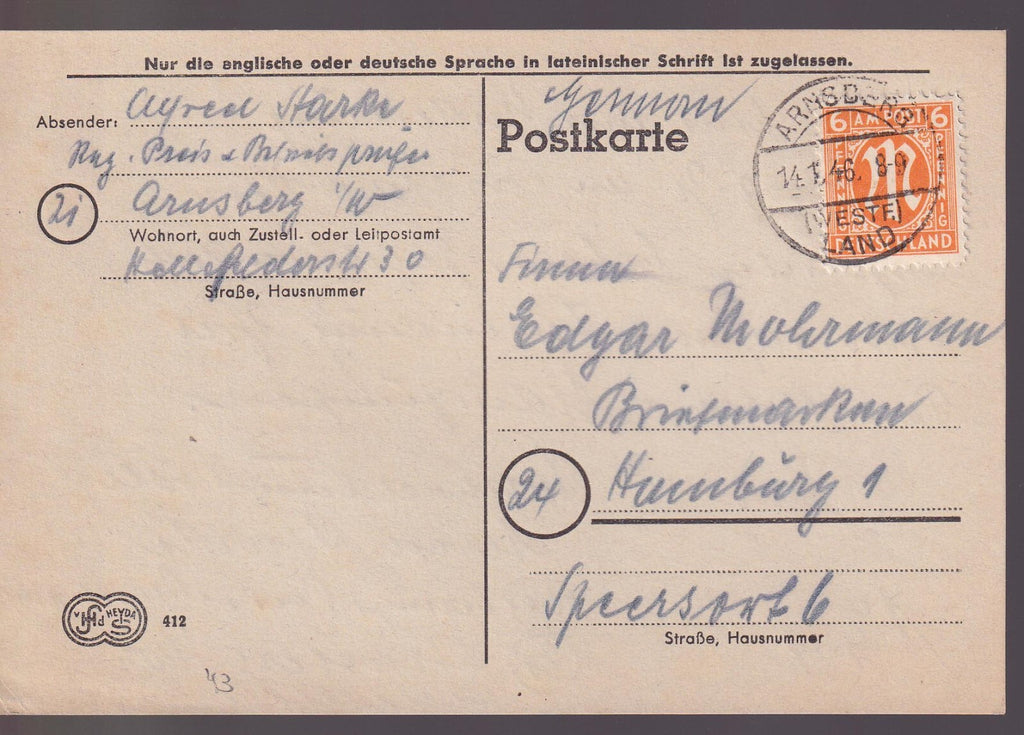 Nur die englische oder deutsche Sprache in lateinischer Schrift ist zugelassen.
Absender: Alfred Starke
Reg. Preis
21 Arnsberg i/W
Wohnort, auch Zustell- oder Leitpostamt
30
Straße, Hausnummer
HEYDA
412
43
German
Postkarte
6 AM POST 6
PFENNIG
PFENNIG
M
DEUTSCHLAND
ARNSBERG
14.1.46. 8-9
(WESTF)
LAND
Firma
Edgar Mohrmann
Briefmarken
24 Hamburg 1
Speersort 6
Straße, Hausnummer